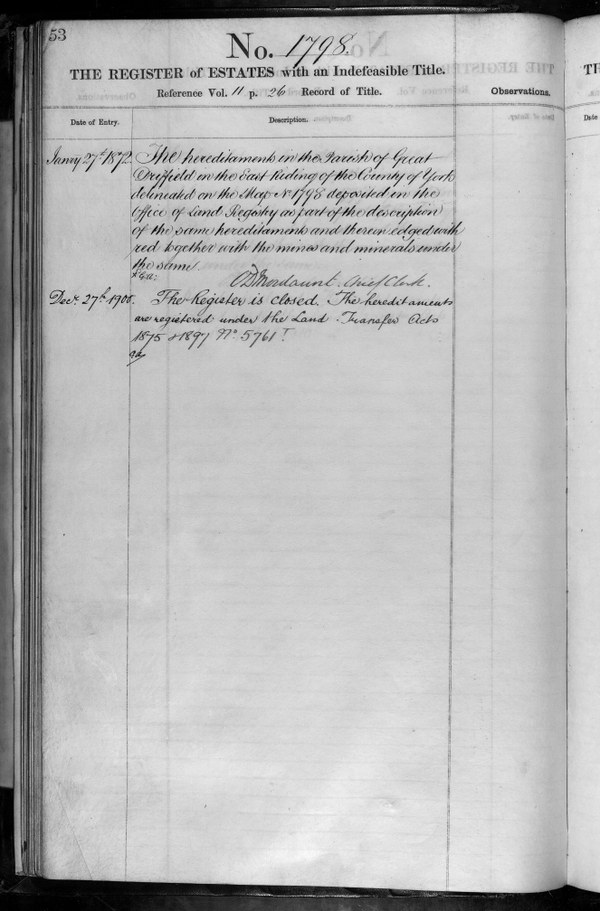 53
No. 1798.
THE REGISTER of ESTATES with an Indefeasible Title.
Reference Vol. 11 p. 26 Record of Title.
Observations.
Date of Entry.
Description.
Janry 27th 1872.
The hereditaments in the Parish of Great
Driffield in the East Riding of the County of York
delineated on the Map No 1798 deposited in the
Office of Land Registry as part of the description
of the same hereditaments and therein edged with
red together with the mines and minerals under
the same.
Mordaunt. Chief Clerk.
Decr 27th 1900.
The Register is closed. The hereditaments
are registered under the Land Transfer Acts
1875 & 1897 No. 5761